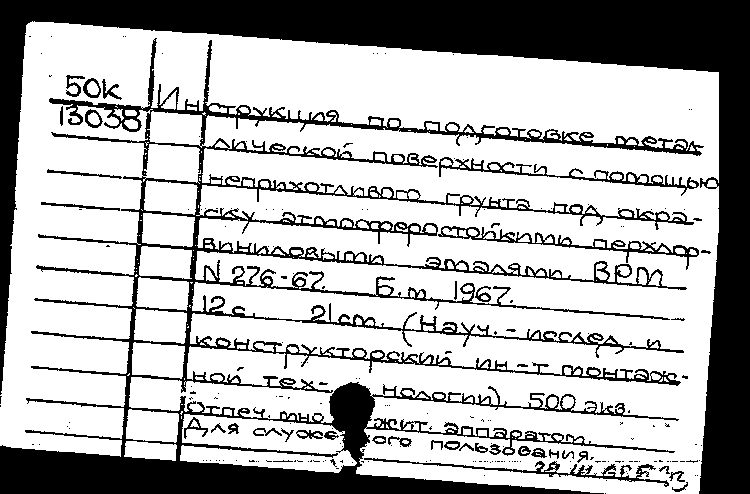 50к
13038
Инструкция по подготовке метал
лической поверхности с помощью
неприхотливого грунта под окра-
ску атмосферостойкими перхлор-
виниловыми эмалями. ВРМ
N 276-67. Б.м., 1967.
12 с. 21 cm. (Науч.-исслед. и
конструкторский ин-т монтаж-
ной тех- нологии). 500 экз.
Отпеч. мно жит. аппаратом.
Для служе ного пользования.